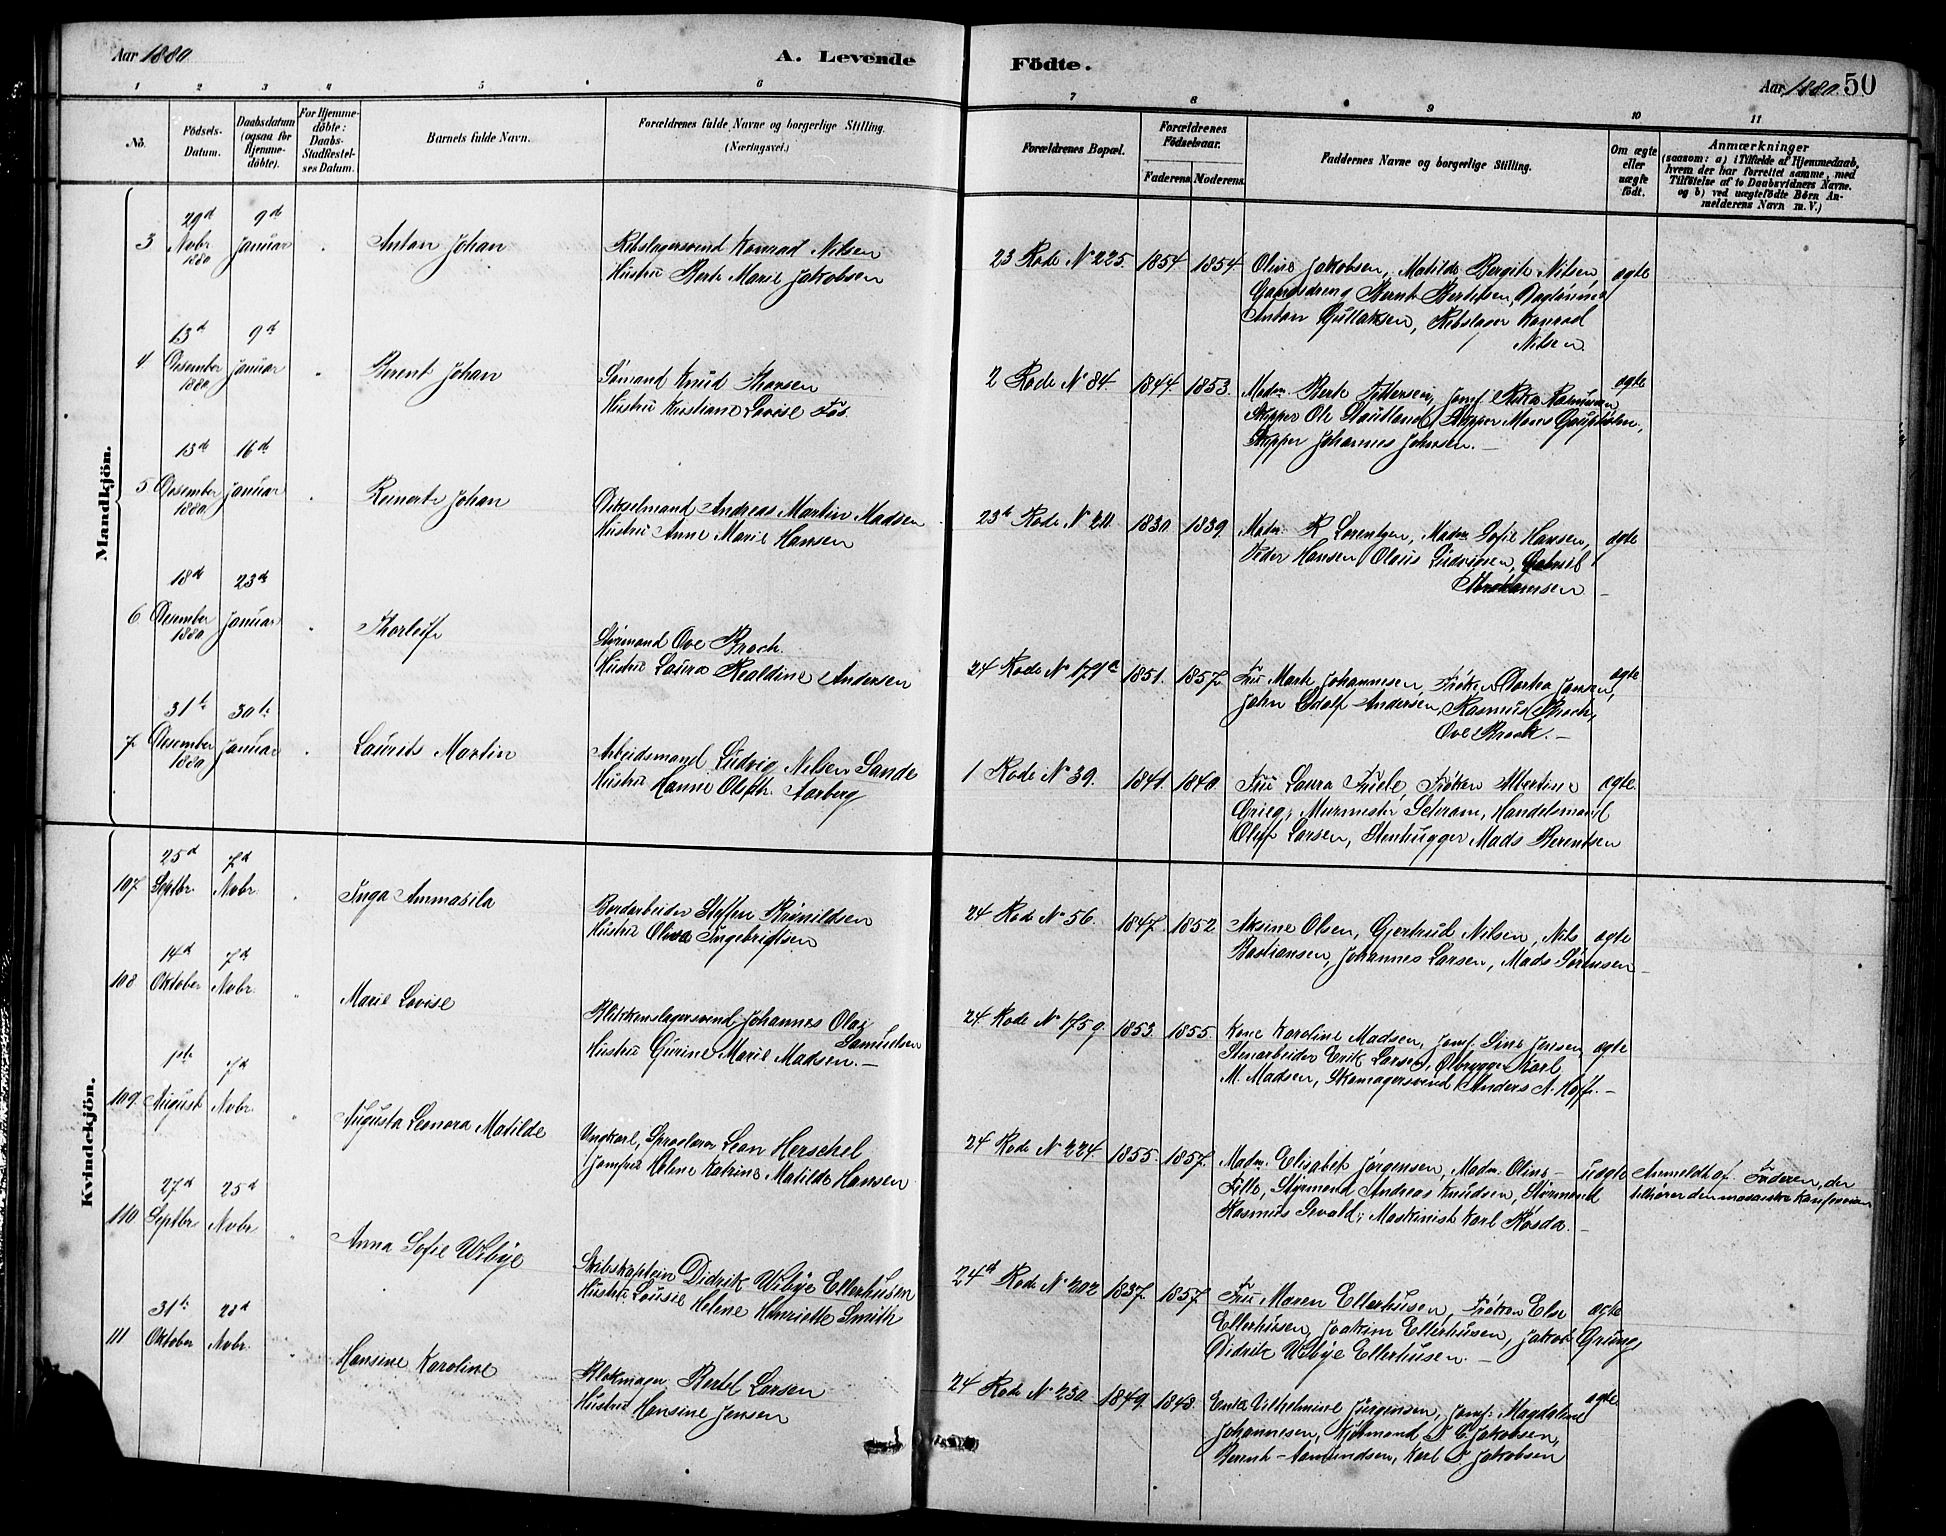 Aar 1880
A. Levende Födte.
Aar 1880. 50
1 2 3 4 5 6 7 8 9 10 11
No.
Födsels-Datum.
Daabsdatum (ogsaa for Hjemmedöbte).
For Hjemmedöbte: Daabs-Stadfestelses Datum.
Barnets fulde Navn.
Forældrenes fulde Navne og borgerlige Stilling. (Næringsvei.)
Forældrenes Bopæl.
Forældrenes Födselsaar.
Faderens. Moderens.
Faddernes Navne og borgerlige Stilling.
Om ægte eller uægte födt.
Anmærkninger
(saasom: a) i Tilfælde af Hjemmedaab, hvem der har forrettet samme, med Tilföielse af to Daabsvidners Navne, og b) ved uægtefödte Börn Anmelderens Navn m. V.)
Mandkjön.
3 29d Novbr 1880 9d Januar
Anton Johan
Rebslagersvend Konrad Nilsen
Hustru Berte Marie Jakobsen
23 Rode No 225. 1854 1854
Oline Jakobsen, Matilde Bergite Nilsen
Gaardsdreng Bernt Bertelsen,
Anton Gullaksen, Rebslager Konrad
Nilsen.
ægte
4 13d Desember 1880 9d Januar
Berent Johan
Sömand Knud Thorsen
Hustru Kristiane Lovise Fös.
2 Rode No 84 1844. 1853.
Madm. Berte Pettersen, Jomf. Rasmussen
Skipper Ole Skipper Mons
Skipper Johannes Johnsen. —
ægte
5 13d Desember 1880 16d Januar
Reinert Johan
Andreas Martin Madsen
Hustru Anne Marie Hansen
23d Rode No 20. 1830. 1839.
Madm. R Lorentzen, Madm Sofie Hansen,
Peder Hansen, Olaus Ludvigsen, Gabriel
Abrahamsen —
ægte
6 18d Desember 1880 23d Januar
Thorleif
Styrmand Ove Broch.
Hustru Laura Realdine Andersen
24 Rode No 171a 1851. 1857.
Fru Marte Johannesen, Fröken Jansen,
John Edolf Andersen, Rasmus Broch,
Ove Broch. —
ægte
7 31te Desember 1880 30te Januar
Laurits Martin
Arbeidsmand Ludvig Nilsen Sande
Hustru Hanne Olsdtr. Aarberg
1 Rode No 39. 1841. 1840.
Fru Laura Friele, Fröken Albertine
Grieg, Murmester Seteram, Handelsmand
Oluf Larsen, Stenhugger Mads Berentsen
ægte.
Kvindekjön.
107. 25d Septbr. 7d Novbr.
Inga Ammasila
Bordarbeider Steffen Brynildsen
Hustru Oliva Ingebrigtsen
24 Rode No 56. 1847. 1852
Aksine Olsen, Gjertrud Nilsen, Nils
Bastiansen, Johannes Larsen, Mads Sörensen —
ægte
108 14d Oktober 7d Novbr.
Marie Lovise
Blikkenslagersvend Johannes Olai
Samuelsen
Hustru Gurine Marie Madsen. —
24 Rode No 175g. 1853. 1855.
Kone Karoline Madsen, Jomf. Sine Jensen
Stenarbeider Erik Larsen, Ölbrygger Karl
M. Madsen, Skomagersvend Anders N. Hoff. —
ægte
109. 1ste August 7d Novbr.
Augusta Leonora Matilde
Ungkarl, Sproglærer Leon Herschel
Jomfru Helene Katrine Matilde Hansen
24 Rode No 224. 1855. 1857.
Madm. Elisabet Jörgensen, Madm. Oline
Fille, Styrmand Andreas Knudsen, Styrmand
Rasmus Sevald, Maskinist Karl Rosda. —
uægte
Anmeldt af Faderen, der
tilhörer den mosaiske konfession
110 27d Septbr 25d Novbr.
Anna Sofie Wibye
Skibskaptein Didrik Wibye Ellerhusen
Hustru Lousie Helene Henriette Smith
24d Rode No 202 1837. 1857.
Fru Maren Ellerhusen, Fröken Else
Ellerhusen, Joakim Ellerhusen, Jakob Grung,
Didrik Wibye Ellerhusen. —
ægte
111 31te Oktober 28d Novbr.
Hansine Karoline
Blokmager Bertel Larsen
Hustru Hansine Jensen
24 Rode No 230. 1849. 1848.
Enke Vilhelmine Jörgensen, Jomf. Magdaline
Johannesen, P C Jakobsen,
Berent Amundsen, Karl P Jakobsen
ægte